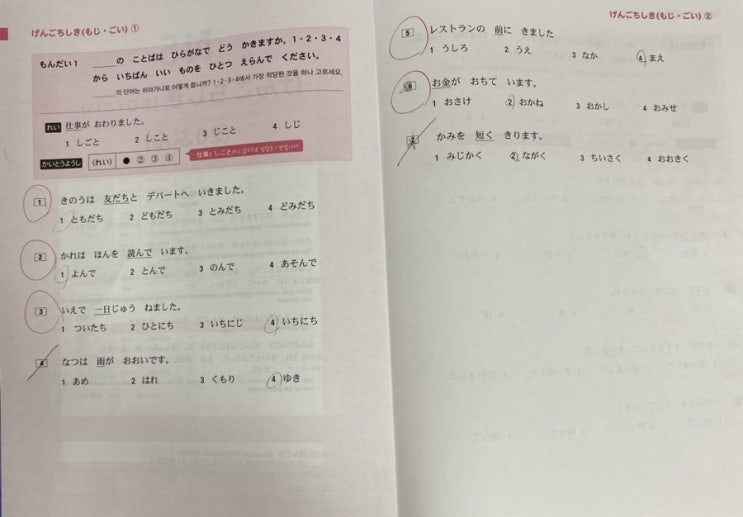 げんごちしき(もじ・ごい) ①
もんだい1 ＿＿＿の ことばは ひらがなで どう かきますか。1・2・3・4
から いちばん いい ものを ひとつ えらんで ください。
의 단어는 히라가나로 어떻게 씁니까? 1·2·3·4에서 가장 적당한 것을 하나 고르세요.
れい 仕事が おわりました。
1 しごと 2 しこと 3 じこと 4 しじ
かいとうようし (れい) ● ② ③ ④
1 きのうは 友だちと デパートへ いきました。
1 ともだち 2 どもだち 3 とみだち 4 どみだち
2 かれは ほんを 読んで います。
1 よんで 2 とんで 3 のんで 4 あそんで
3 いえで 一日じゅう ねました。
1 ついたち 2 ひとにち 3 いちにじ 4 いちにち
4 なつは 雨が おおいです。
1 あめ 2 はれ 3 くもり 4 ゆき
げんごちしき(もじ・ごい) ②
5 レストランの 前に きました
1 うしろ 2 うえ 3 なか 4 まえ
6 お金が おちて います。
1 おさけ 2 おかね 3 おかし 4 おみせ
かみを 短く きります。
1 みじかく 2 ながく 3 ちいさく 4 おおきく